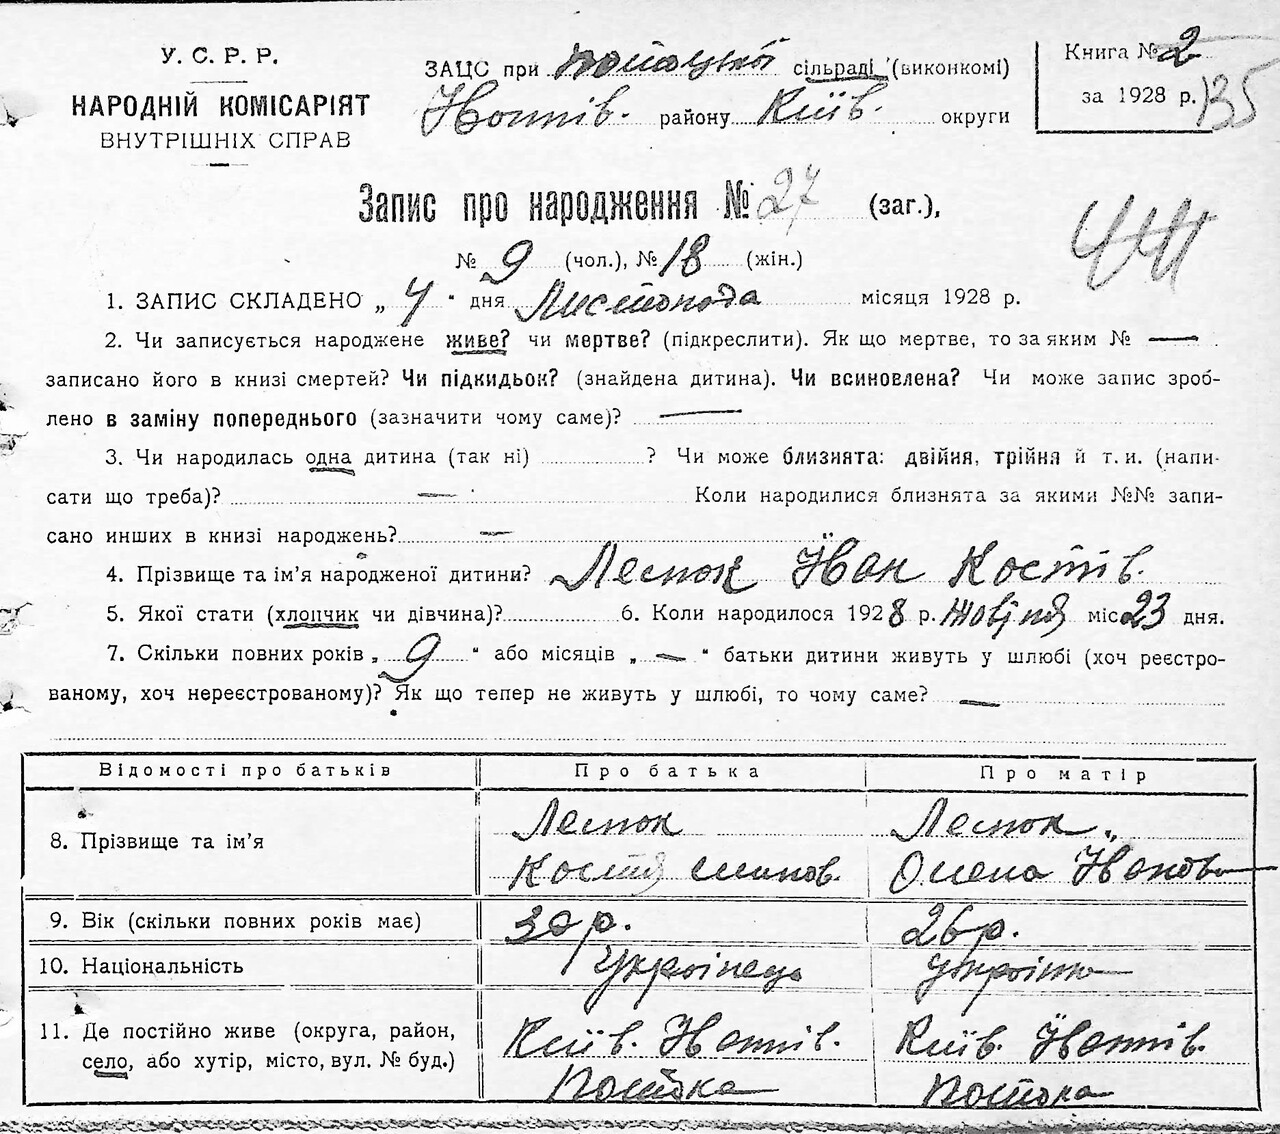 У. С. Р. Р.
НАРОДНІЙ КОМІСАРІЯТ
ВНУТРІШНІХ СПРАВ
ЗАЦС при сільраді (виконкомі)
району Київ. округи
Книга № 2
за 1928 р. 135
Запис про народження № 27 (заг.),
№ 9 (чол.), № 18 (жін.)
1. ЗАПИС СКЛАДЕНО „ 4 " дня Листопада місяця 1928 р.
2. Чи записується народжене живе? чи мертве? (підкреслити). Як що мертве, то за яким № —
записано його в книзі смертей? Чи підкидьок? (знайдена дитина). Чи всиновлена? Чи може запис зроб-
лено в заміну попереднього (зазначити чому саме)? —
3. Чи народилась одна дитина (так ні) ? Чи може близнята: двійня, трійня й т. и. (напи-
сати що треба)? — Коли народилися близнята за якими №№ запи-
сано инших в книзі народжень? —
4. Прізвище та ім'я народженої дитини? Іван Костів.
5. Якої стати (хлопчик чи дівчина)? 6. Коли народилося 1928 р. міс 23 дня.
7. Скільки повних років „ 9 " або місяців „ — " батьки дитини живуть у шлюбі (хоч реєстро-
ваному, хоч нереєстрованому)? Як що тепер не живуть у шлюбі, то чому саме? —
Відомості про батьків Про батька Про матір
8. Прізвище та ім'я
Олена Іванов
9. Вік (скільки повних років має) 30 р. 26 р.
10. Національність Українець Українка
11. Де постійно живе (округа, район,
село, або хутір, місто, вул. № буд.)
Київ. Київ.